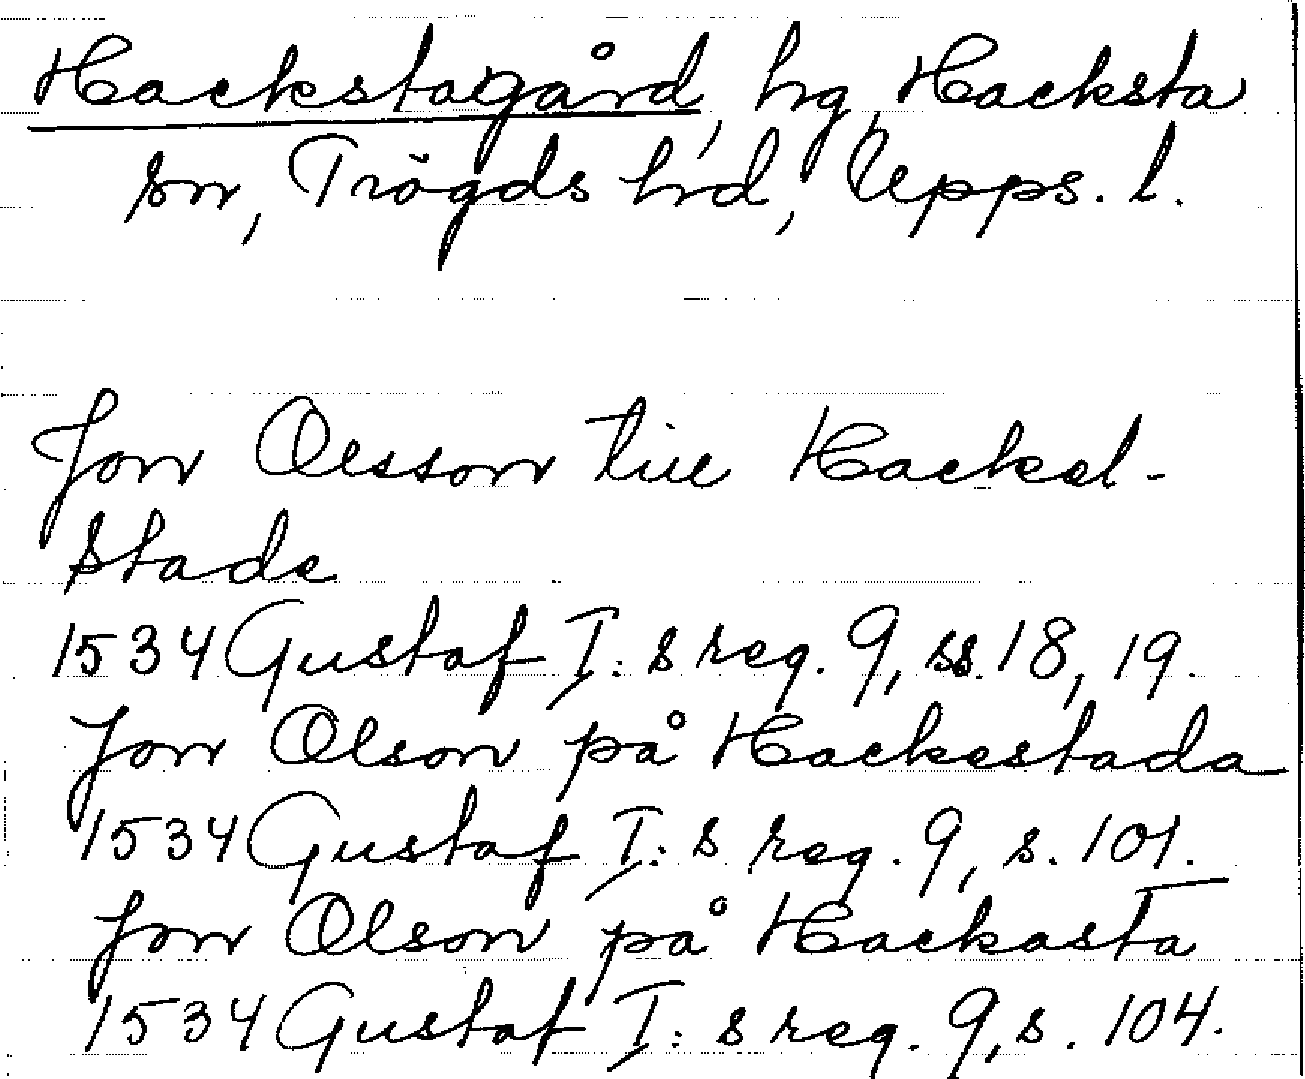 Hackstagård, hg, Hacksta
sn, Trögds hrd, Upps. l.
Jon Olsson till Hackel-
stade
1534 Gustaf I: s reg. 9, ss. 18, 19.
Jon Olson på Hackestada
1534 Gustaf I: s reg. 9, s. 101.
Jon Olson på Hackasta
1534 Gustaf I: s reg. 9, s. 104.